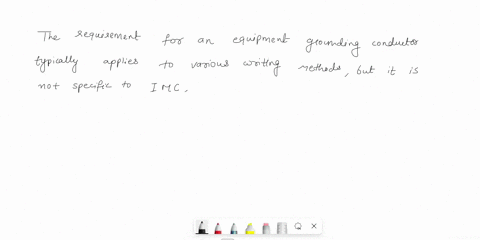 The requirement for an equipment grounding conductor
typically applies to various writing methods, but it is
not specific to IMC.